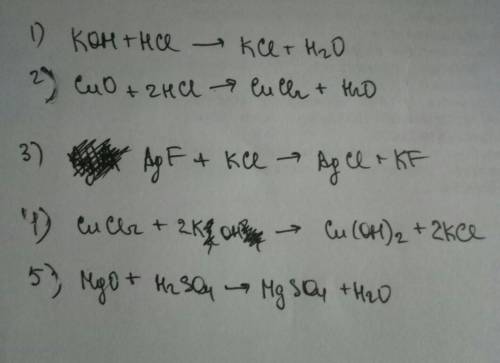 1) KOH + HCl → KCl + H2O
2) CuO + 2HCl → CuCl2 + H2O
3) AgF + KCl → AgCl + KF
4) CuCl2 + 2KOH → Cu(OH)2 + 2KCl
5) MgO + H2SO4 → MgSO4 + H2O